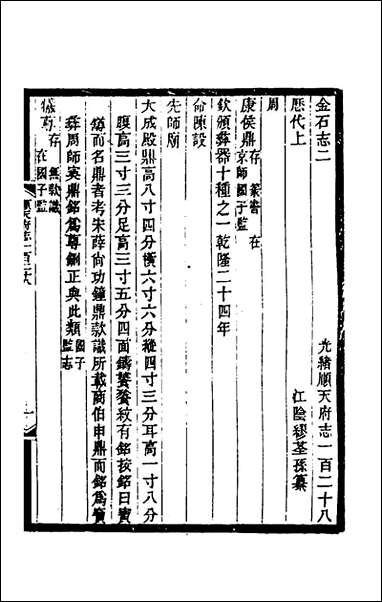 金石志二
光緒順天府志一百二十八
歷代上
江陰繆荃孫纂
周
康侯鼎存 篆書 在京師國子監
欽頒彝器十種之一乾隆二十四年
命陳設
先師廟
大成殿鼎高八寸四分橫六寸六分縱四寸三分耳高一寸八分
腹高三寸三分足高三寸五分四面鑄饕餮紋有銘按銘曰寶
尊而名鼎者考朱薛尙功鐘鼎款識所載商伯申鼎而銘爲寶
彝周師㝨鼎銘爲尊鍘正與此類國子監志
犧尊存 無款識 在國子監
順天府志一百二十八
一